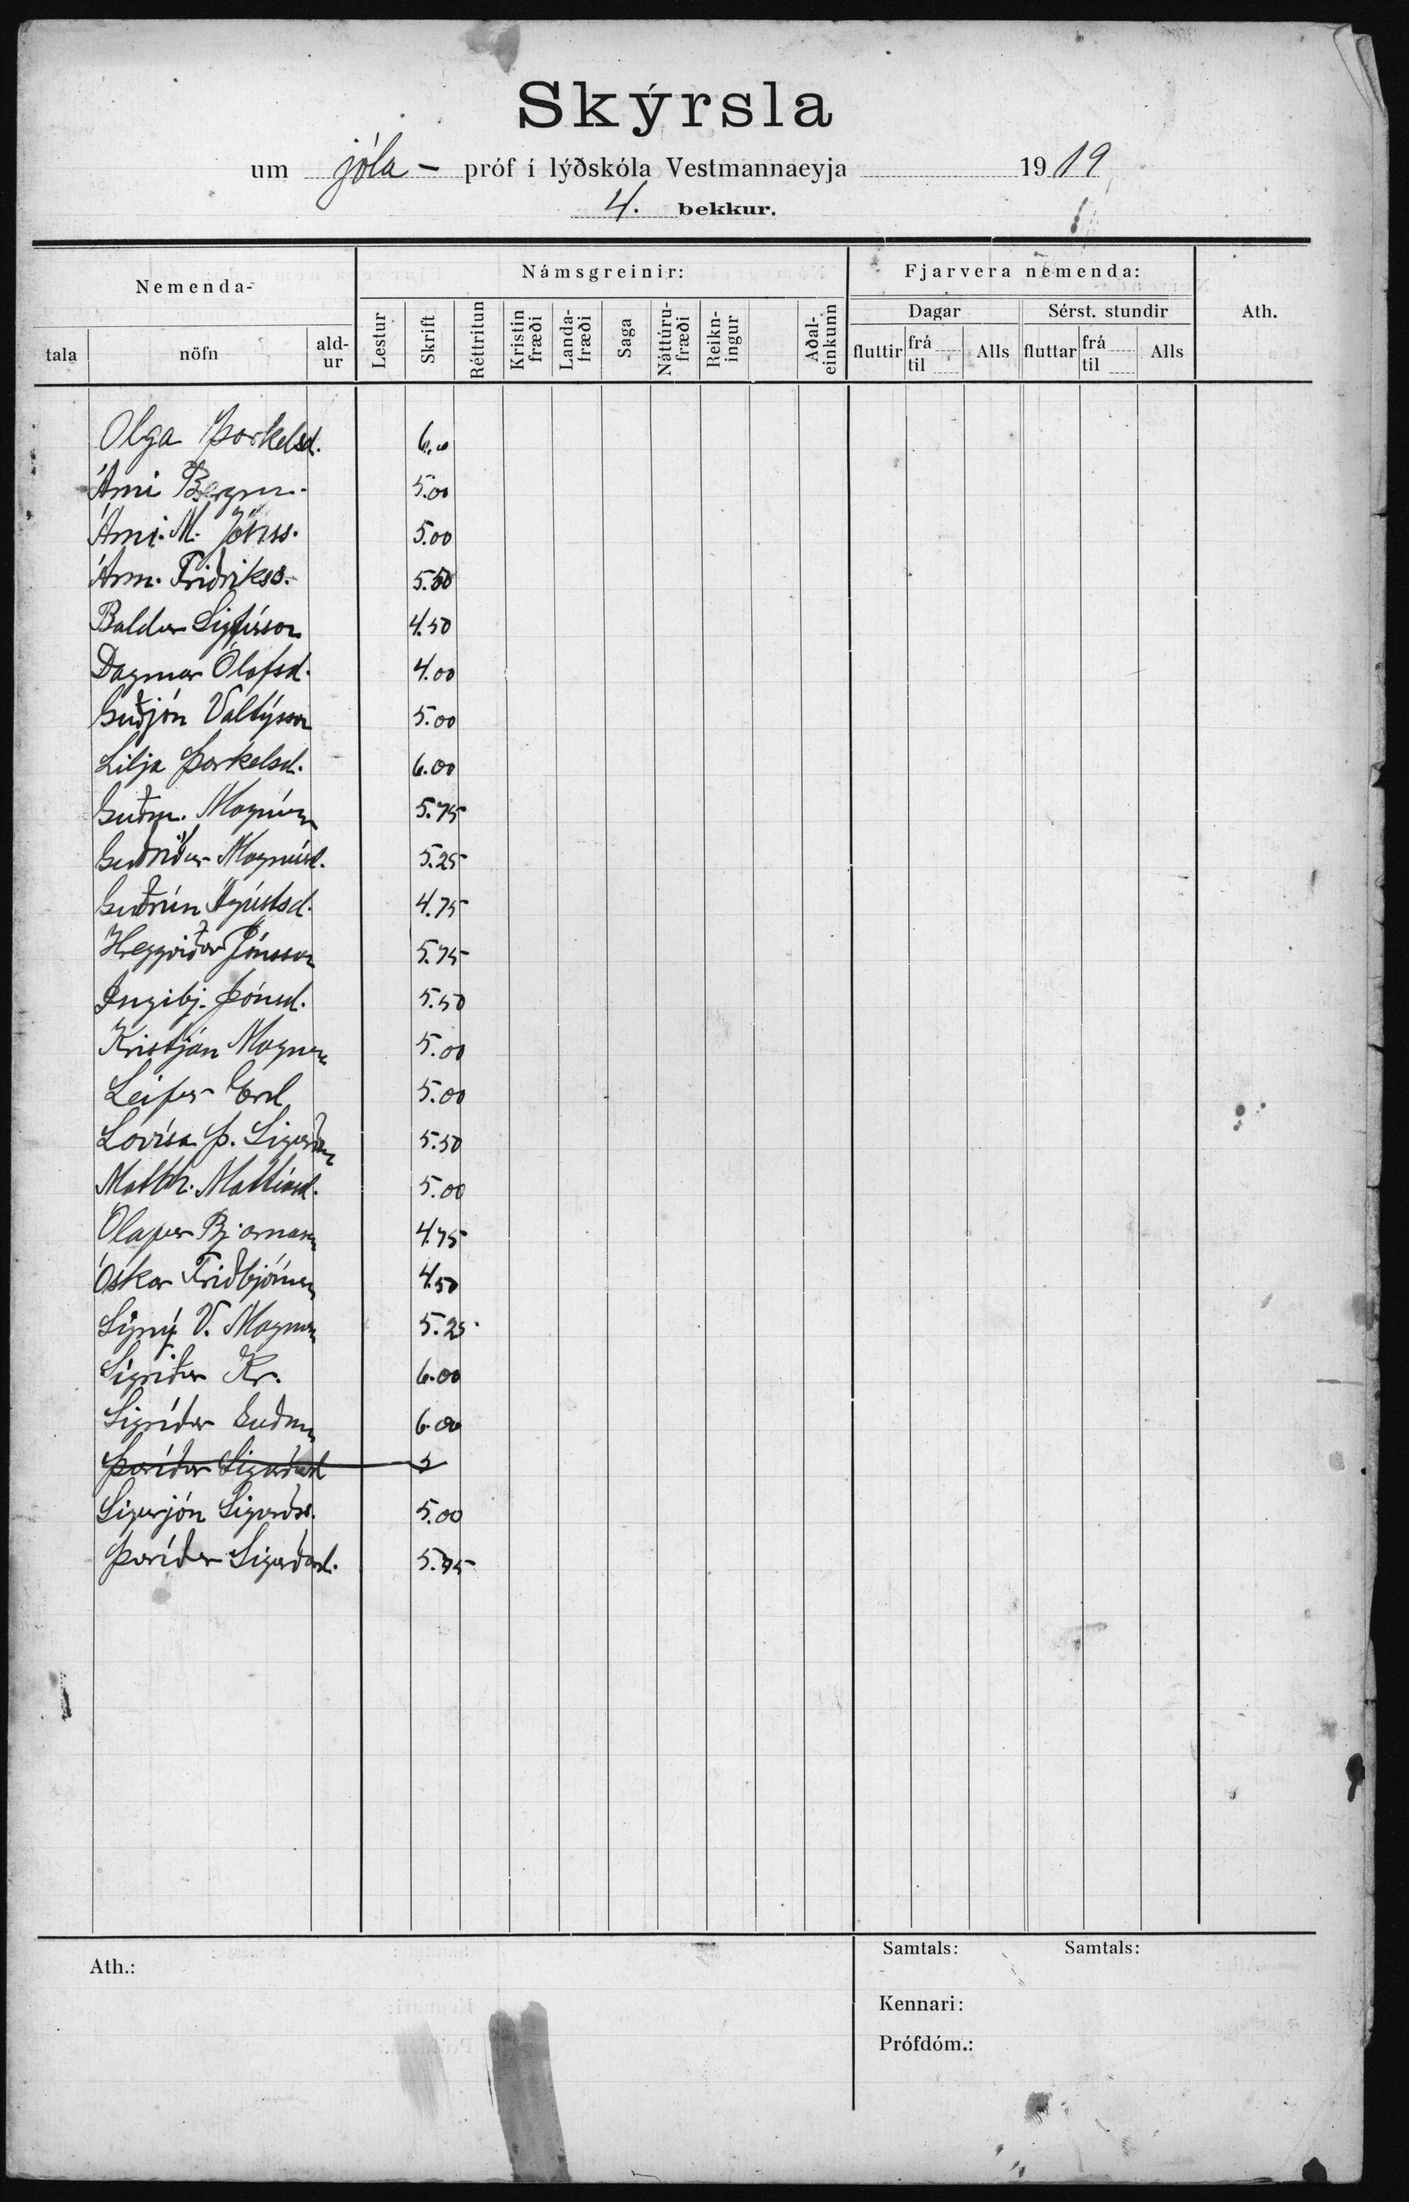 Skýrsla
um jóla- próf í lýðskóla Vestmannaeyja 1919
4. bekkur.
Nemenda-
Námsgreinir:
Fjarvera nemenda:
Ath.
tala nöfn ald-ur Lestur Skrift Réttritun Kristin fræði Landa-fræði Saga Náttúru-fræði Reikn-ingur Aðal-einkunn
Dagar Sérst. stundir
fluttir frá til Alls fluttar frá til Alls
Olga Þorkelsd. 6.0
Árni 5.00
Árni M. Jónss. 5.00
Árm. Friðrikss. 5.50
Baldur Sigfússon 4.50
Dagmar Ólafsd. 4.00
Guðjón Valtýsson 5.00
Lilja Þorkelsd. 6.00
Guðm. 5.75
Guðríður Magnúsd. 5.25
Guðrún Ágústsd. 4.75
Hreggviður Jónsson 5.75
Ingibj. Þónsd. 5.50
Kristján 5.00
Leifur Erl 5.00
Lovísa Þ. 5.50
Matth. Mattíasd. 5.00
Ólafur Bjarnason 4.75
Óskar 4.50
Signý V. 5.25
Sigríður Kr. 6.00
Sigríður 6.00
Þuríður Sigurðard 5
Sigurjón Sigurðss. 5.00
Þuríður Sigurðard.
Ath.:
Samtals: Samtals:
Kennari:
Prófdóm.: